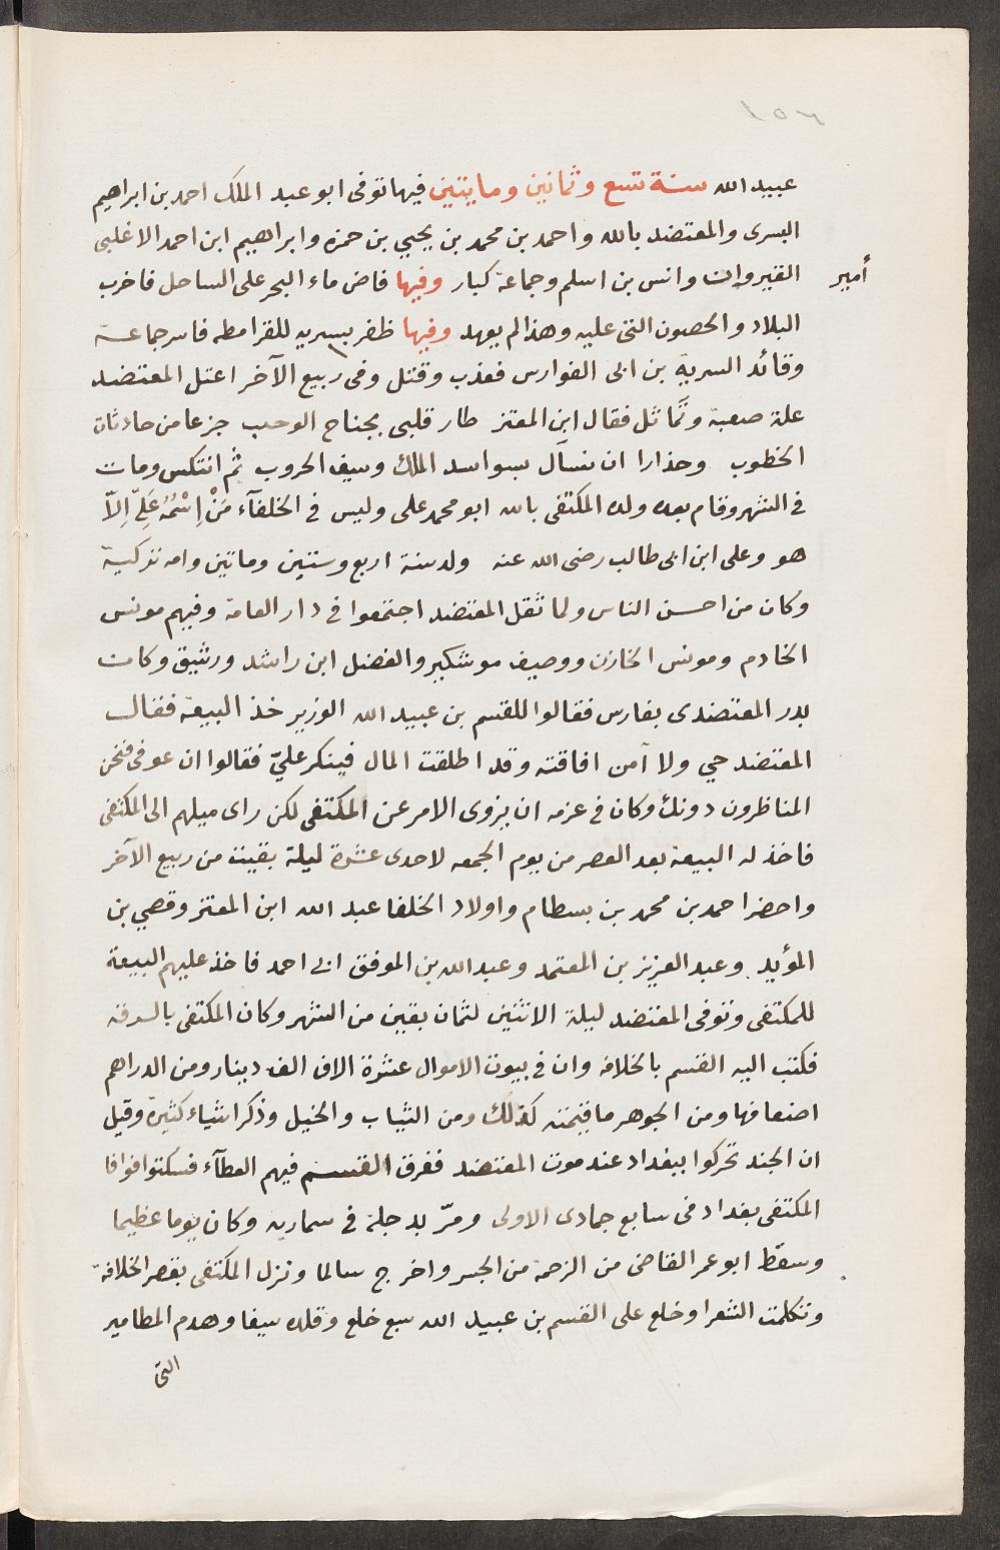 ١٥٣
عبيد الله سنة تسع وثمانين ومايتين فيها توفى ابو عبد الملك احمد بن ابراهيم
البسرى والمعتضد بالله واحمد بن محمد بن يحيي بن حمزه وابراهيم ابن احمد الاغلبى
أمير
القيروان وانس بن اسلم وجماعة كبار وفيها فاض ماء البحر على الساحل فاخرب
البلاد والحصون التى عليه وهذا لم يعهد وفيها ظفر بسريه للقرامطه فاسر جماعة
وقائد السرية بن ابى الفوارس فعذب وقتل وفى ربيع الآخر اعتل المعتضد
علة صعبة وتماثل فقال ابن المعتز طار قلبى بجناح الوجب جزعا من حادثات
الخطوب وحذارا ان نسآل بسو اسد الملك وسيف الحروب ثم انتكس ومات
فى الشهر وقام بعده ولده المكتفى بالله ابو محمد على وليس فى الخلفآء مَنْ اِسْمُهُ عَلِىّ اِلاّ
هو وعلى ابن ابى طالب رضى الله عنه ولد سنة اربع وستين وماتين وامه تركية
وكان من احسن الناس ولما ثقل المعتضد اجتمعوا فى دار العامة وفيهم مونس
الخادم ومونس الخازن ووصيف موشكير والفضل ابن راشد ورشيق وكان
بدر المعتضدى بفارس فقالوا للقسم بن عبيد الله الوزير خذ البيعة فقال
المعتضد حي ولا آمن افاقته وقد اطلقت المال فينكر عليّ فقالوا ان عوفى فنحن
المناظرون دونك وكان فى عزمه ان يزوى الامر عن المكتفى لكن راى ميلهم الى المكتفى
فاخذ له البيعة بعد العصر من يوم الجمعه لاحدى عشرة ليلة بقيت من ربيع الآخر
واحضر احمد بن محمد بن بسطام واولاد الخلفا عبد الله ابن المعتز وقصي بن
المؤيد وعبد العزيز بن المعتمد وعبد الله بن الموفق ابى احمد فاخذ عليهم البيعة
للمكتفى وتوفى المعتضد ليلة الاثنين لثمان بقين من الشهر وكان المكتفى بالرقه
فكتب اليه القسم بالخلافه وان فى بيوت الاموال عشرة الاف الف دينار ومن الدراهم
اضعافها ومن الجوهر ما قيمته كذلك ومن الثياب والخيل وذكر اشياء كثيرة وقيل
ان الجند تحركوا ببغداد عند موت المعتضد ففرق القسم فيهم العطآء فسكتوا فوافا
المكتفى بغداد فى سابع جمادى الاولى ومرّ بدجلة فى سماريه وكان يوما عظيما
وسقّط ابو عمر القاضى من الزحمة من الجسر واخرج سالما ونزل المكتفى بقصر الخلافة
وتكلمت الشعرا وخلع على القسم بن عبيد الله سبع خلع وقلده سيفا وهدم المطامير
التى